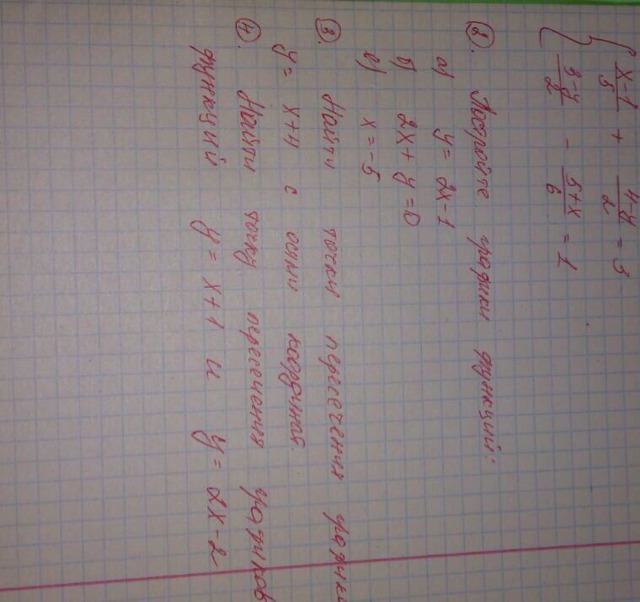 { x-1/5 + 4-y/2 = 3
3-y/2 - 5+x/6 = 1
2. Постройте графики функций:
а) y = 2x-1
б) 2x + y = 0
в) x = -5
3. Найти точки пересечения
y = x+4 с осями координат.
4. Найти точку пересечения графиков
функций y = x+1 и y = 2x-2